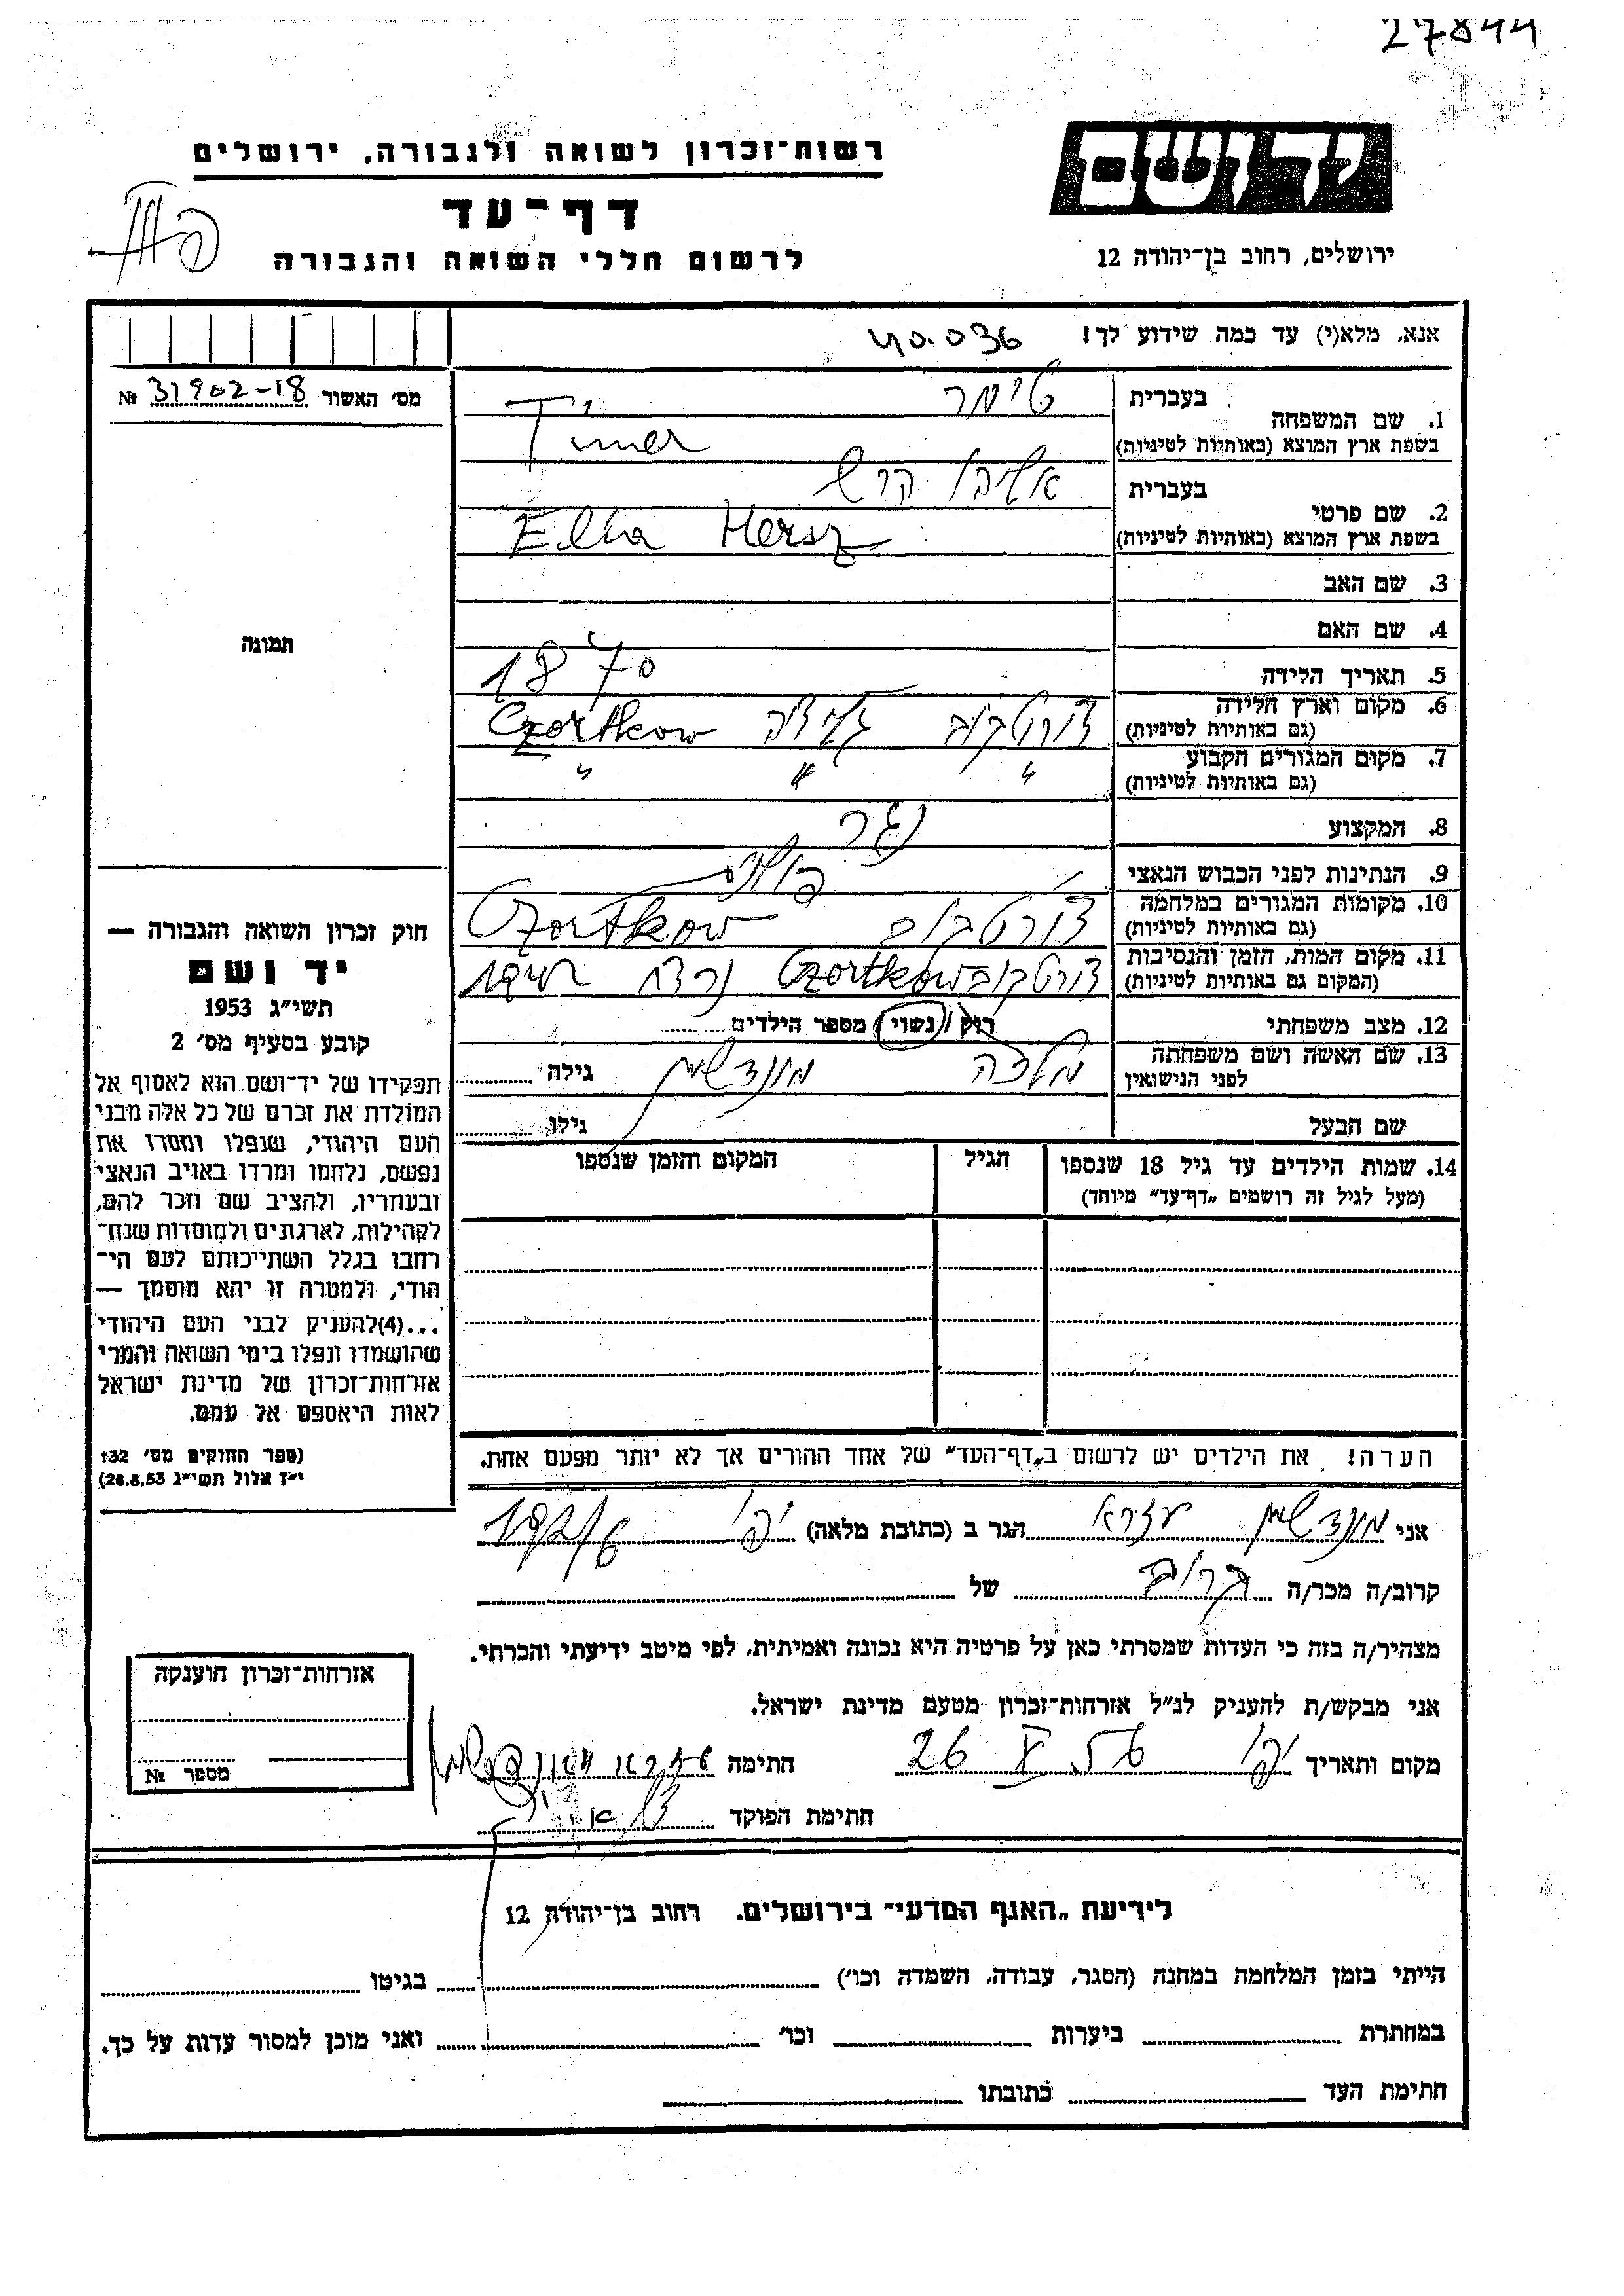 27844
יד ושם
רשות־זכרון לשואה ולגבורה, ירושלים
דף־עד
לרשום חללי השואה והגבורה
ירושלים, רחוב בן־יהודה 12
אנא, מלא(י) עד כמה שידוע לך!
40.036
מס׳ האשור 31902-18 №
תמונה
1. שם המשפחה
בעברית טימר
בשפת ארץ המוצא (באותיות לטיניות) Timer
2. שם פרטי
בעברית הרש
בשפת ארץ המוצא (באותיות לטיניות) Hersz
3. שם האב
4. שם האם
5. תאריך הלידה 1870
6. מקום וארץ הלידה
(גם באותיות לטיניות) צורטקוב Czortkow
7. מקום המגורים הקבוע
(גם באותיות לטיניות) " " "
8. המקצוע נגר
9. הנתינות לפני הכבוש הנאצי
10. מקומות המגורים במלחמה
(גם באותיות לטיניות) צורטקוב Czortkow
11. מקום המות, הזמן והנסיבות
(המקום גם באותיות לטיניות) צורטקוב Czortkow נרצח
12. מצב משפחתי רוק / נשוי / מספר הילדים
13. שם האשה ושם משפחתה
לפני הנישואין מלכה מונדשיין גילה
שם הבעל גילו
14. שמות הילדים עד גיל 18 שנספו
(מעל לגיל זה רושמים „דף־עד” מיוחד)
הגיל
המקום והזמן שנספו
הערה! את הילדים יש לרשום ב„דף־העד” של אחד ההורים אך לא יותר מפעם אחת.
חוק זכרון השואה והגבורה —
יד ושם
תשי״ג 1953
קובע בסעיף מס׳ 2
תפקידו של יד־ושם הוא לאסוף אל
המולדת את זכרם של כל אלה מבני
העם היהודי, שנפלו ומסרו את
נפשם, נלחמו ומרדו באויב הנאצי
ובעוזריו, ולהציב שם וזכר להם,
לקהילות, לארגונים ולמוסדות שנח־
רחבו בגלל השתייכותם לעם הי־
הודי, ולמטרה זו יהא מוסמך —
...(4)להעניק לבני העם היהודי
שהושמדו ונפלו בימי השואה והמרי
אזרחות־זכרון של מדינת ישראל
לאות היאספם אל עמם.
(ספר החוקים מס׳ 132
י״ז אלול תשי״ג 28.8.53)
אני מונדשיין עזרא הגר ב (כתובת מלאה) יפו
קרוב/ה מכר/ה קרוב של
מצהיר/ה בזה כי העדות שמסרתי כאן על פרטיה היא נכונה ואמיתית, לפי מיטב ידיעתי והכרתי.
אני מבקש/ת להעניק לנ״ל אזרחות־זכרון מטעם מדינת ישראל.
מקום ותאריך יפו 26 חתימה
חתימת הפוקד
אזרחות־זכרון הוענקה
מספר №
לידיעת „האגף המדעי” בירושלים. רחוב בן־יהודה 12
הייתי בזמן המלחמה במחנה (הסגר, עבודה, השמדה וכו׳) בגיטו
במחתרת ביערות וכו׳ ואני מוכן למסור עדות על כך.
חתימת העד כתובתו